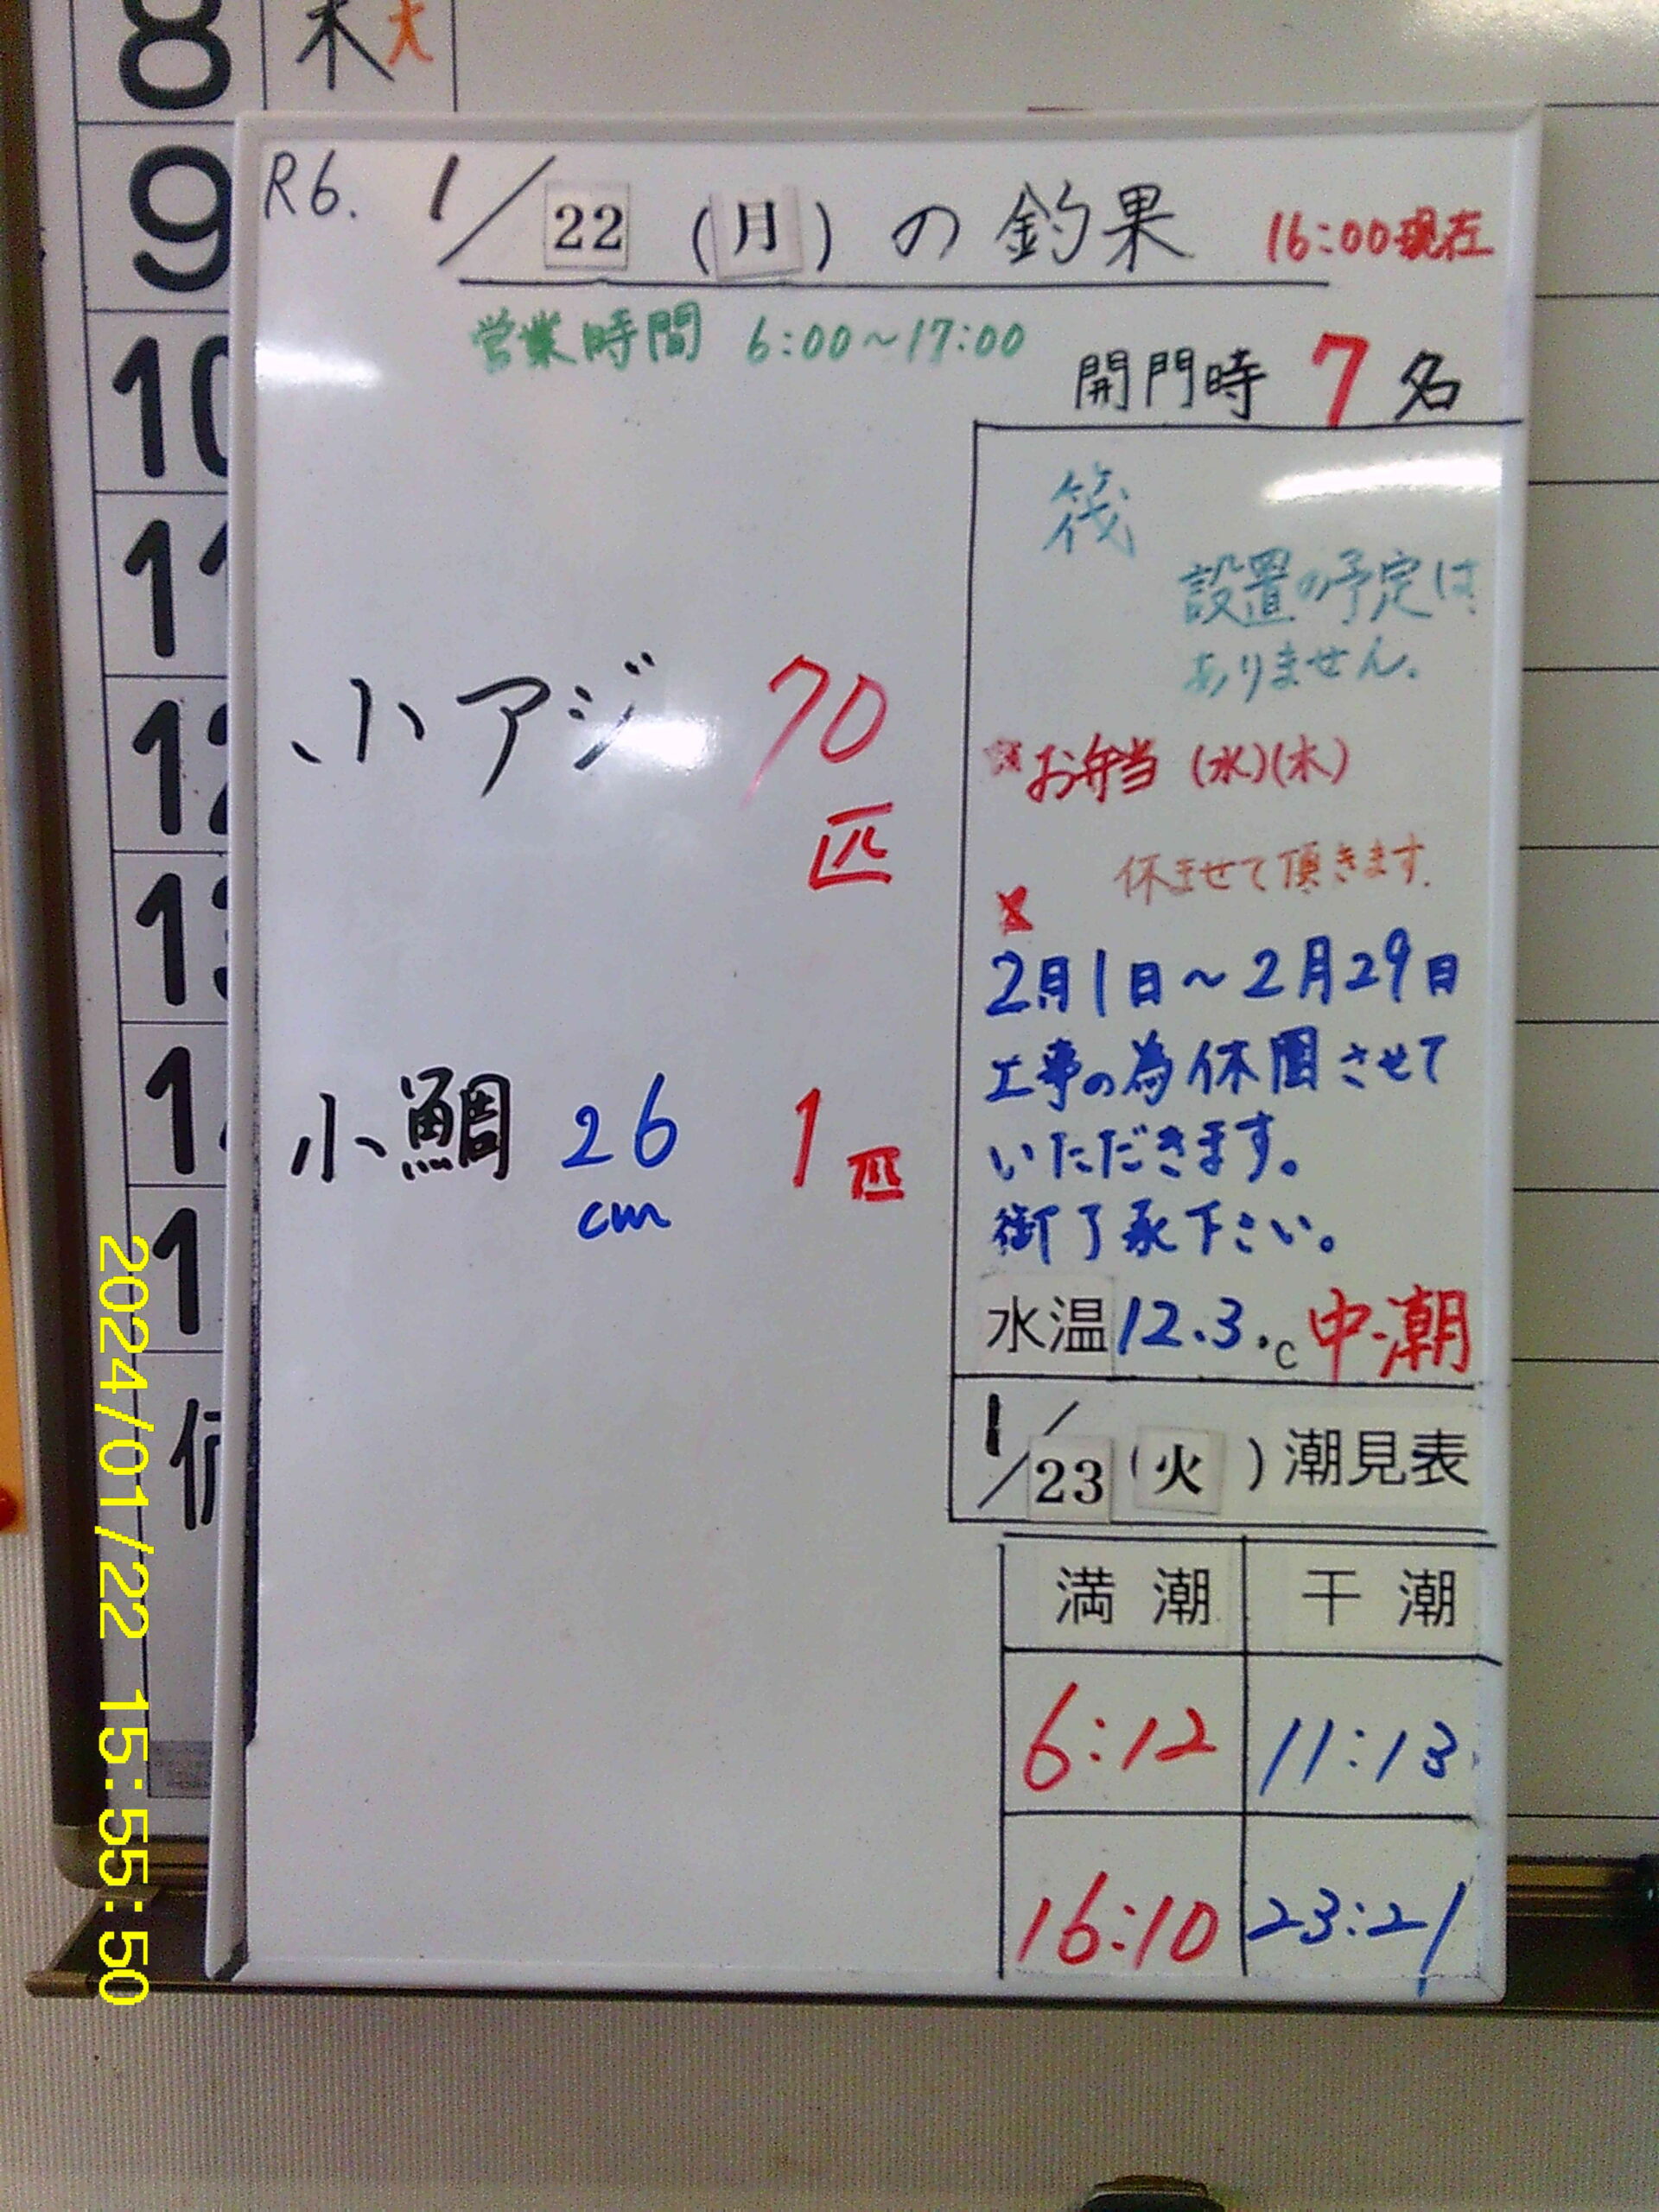 8 木 大
9
10
11
12
R6. 1/22 (月) の釣果 16:00現在
営業時間 6:00~17:00
開門時 7名
筏
設置の予定は
ありません。
小アジ 70
匹
※お弁当 (水)(木)
休ませて頂きます.
※
2月1日~2月29日
工事の為休園させて
いただきます。
御了承下さい。
小鯛 26 1匹
cm
水温 12.3℃ 中潮
1/23 (火) 潮見表
満潮 干潮
6:12 11:13
16:10 23:21
2024/01/22 15:55:50